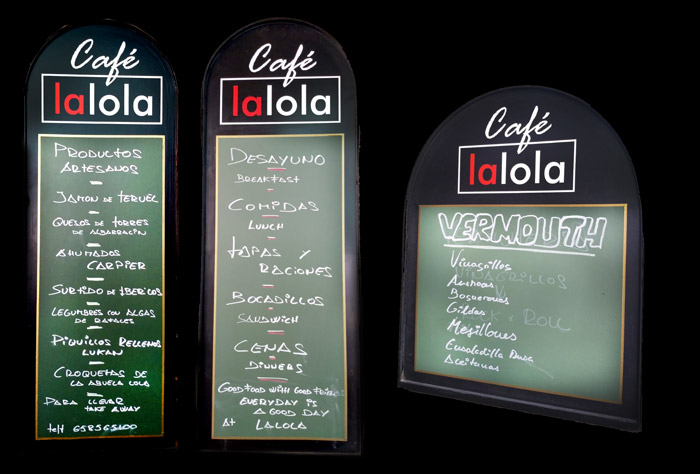 Café
lalola
PRODUCTOS
ARTESANOS
JAMON DE TERUEL
QUESOS DE TORRES
DE ALBARRACIN
AHUMADOS
CARPIER
SURTIDO DE IBERICOS
LEGUMBRES CON ALGAS
PIQUILLOS RELLENOS
CROQUETAS DE
LA ABUELA LOLA
PARA LLEVAR
TAKE AWAY
Café
lalola
DESAYUNO
BREAKFAST
COMIDAS
LUNCH
TAPAS Y
RACIONES
BOCADILLOS
SANDWICH
CENAS
DINNERS
GOOD FOOD WITH GOOD FRIENDS
EVERYDAY IS
A GOOD DAY
At LALOLA
Café
lalola
VERMOUTH
Vinagrillos
VINAGRILLOS
Anchoas
Boquerones
Gildas
ROLL
Mejillones
Ensaladilla Rusa
Aceitunas